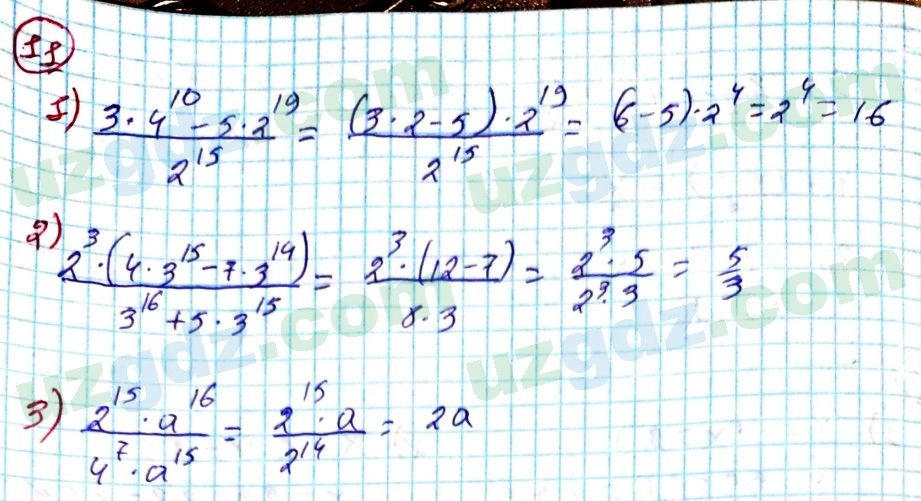 11
1) (3·4^10 - 5·2^19)/2^15 = ((3·2-5)·2^19)/2^15 = (6-5)·2^4 = 2^4 = 16
2) (2^3·(4·3^15 - 7·3^14))/(3^16 + 5·3^15) = (2^3·(12-7))/(8·3) = (2^3·5)/(2^3·3) = 5/3
3) (2^15·a^16)/(4^7·a^15) = (2^15·a)/2^14 = 2a
uzgdz.com
uzgdz.com
uzgdz.com
uzgdz.com